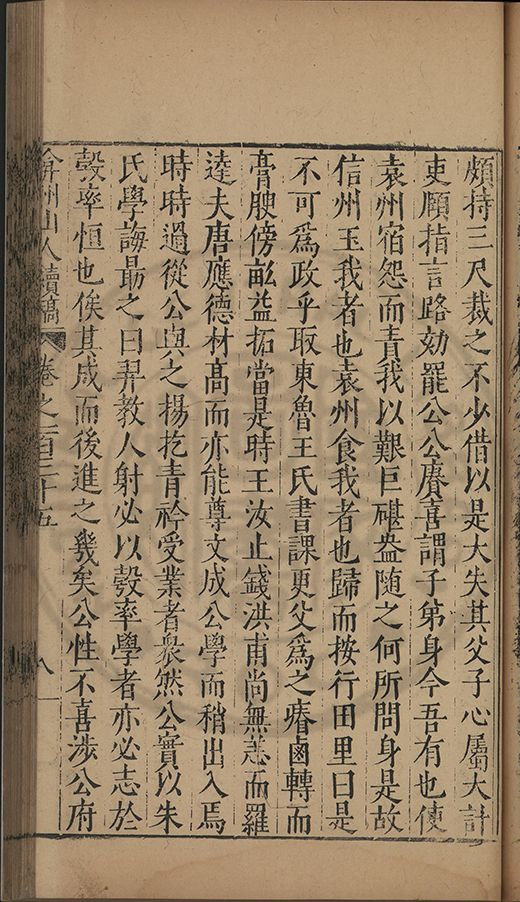 頗持三尺裁之不少借以是大失其父子心屬大計
吏頤指言路劾罷公公賡喜謂子第身今吾有也使
袁州宿怨而責我以艱巨礎盎随之何所問身是故
信州玉我者也袁州食我者也歸而按行田里曰是
不可為政乎取東魯王氏書課更父為之瘠鹵轉而
膏腴傍畝益拓當是時王汝止錢洪甫尚無恙而羅
逹夫唐應德材髙而亦能尊文成公學而稍出入焉
時時過從公與之揚扢青衿受業者衆然公實以朱
氏學誨勗之曰羿教人射必以彀率學者亦必志於
彀率恒也俟其成而後進之幾矣公性不喜涉公府
弇州山人續稿 卷之一百三十五 八